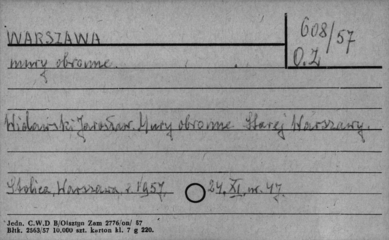 WARSZAWA
608/57
mury obronne.
O.Z
Widawski Jarosław. Mury obronne Starej Warszawy.
Stolica, Warszawa, r. 1957. 24. XI, nr. 47.
Jedn. C.W.D B/Olsztyn Zam 2776/on/ 57
Bltk. 2563/57 10.000 szt. karton kl. 7 g 220.